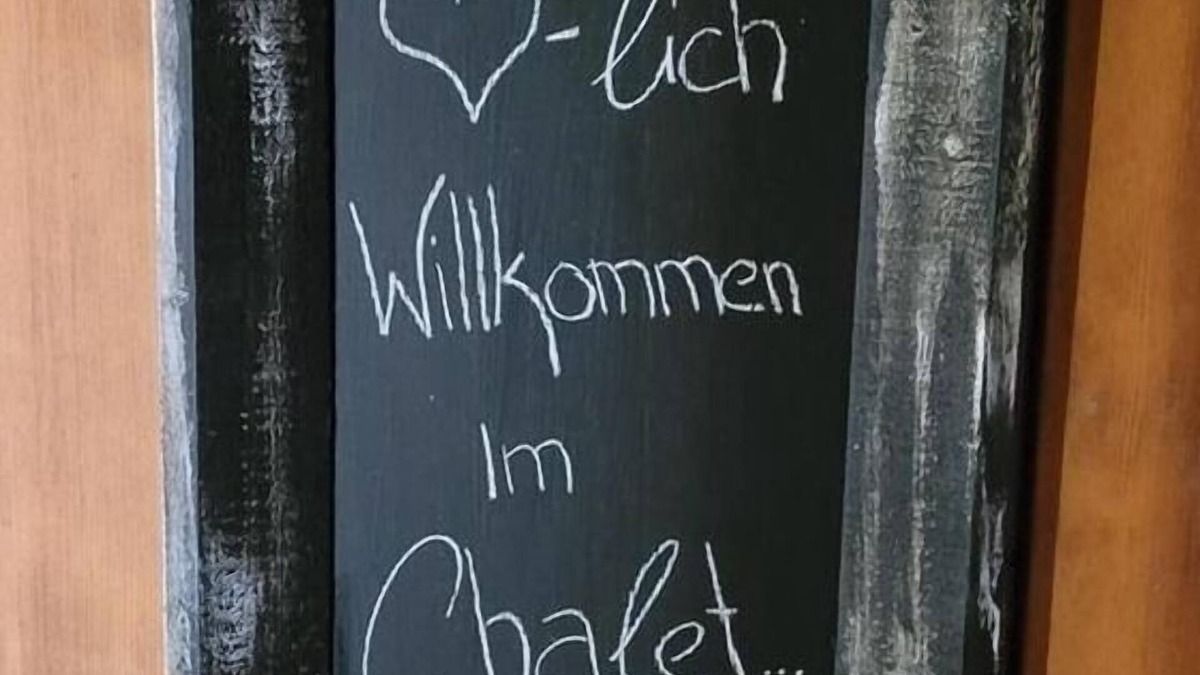 ♡-lich
Willkommen
Im
Chalet...